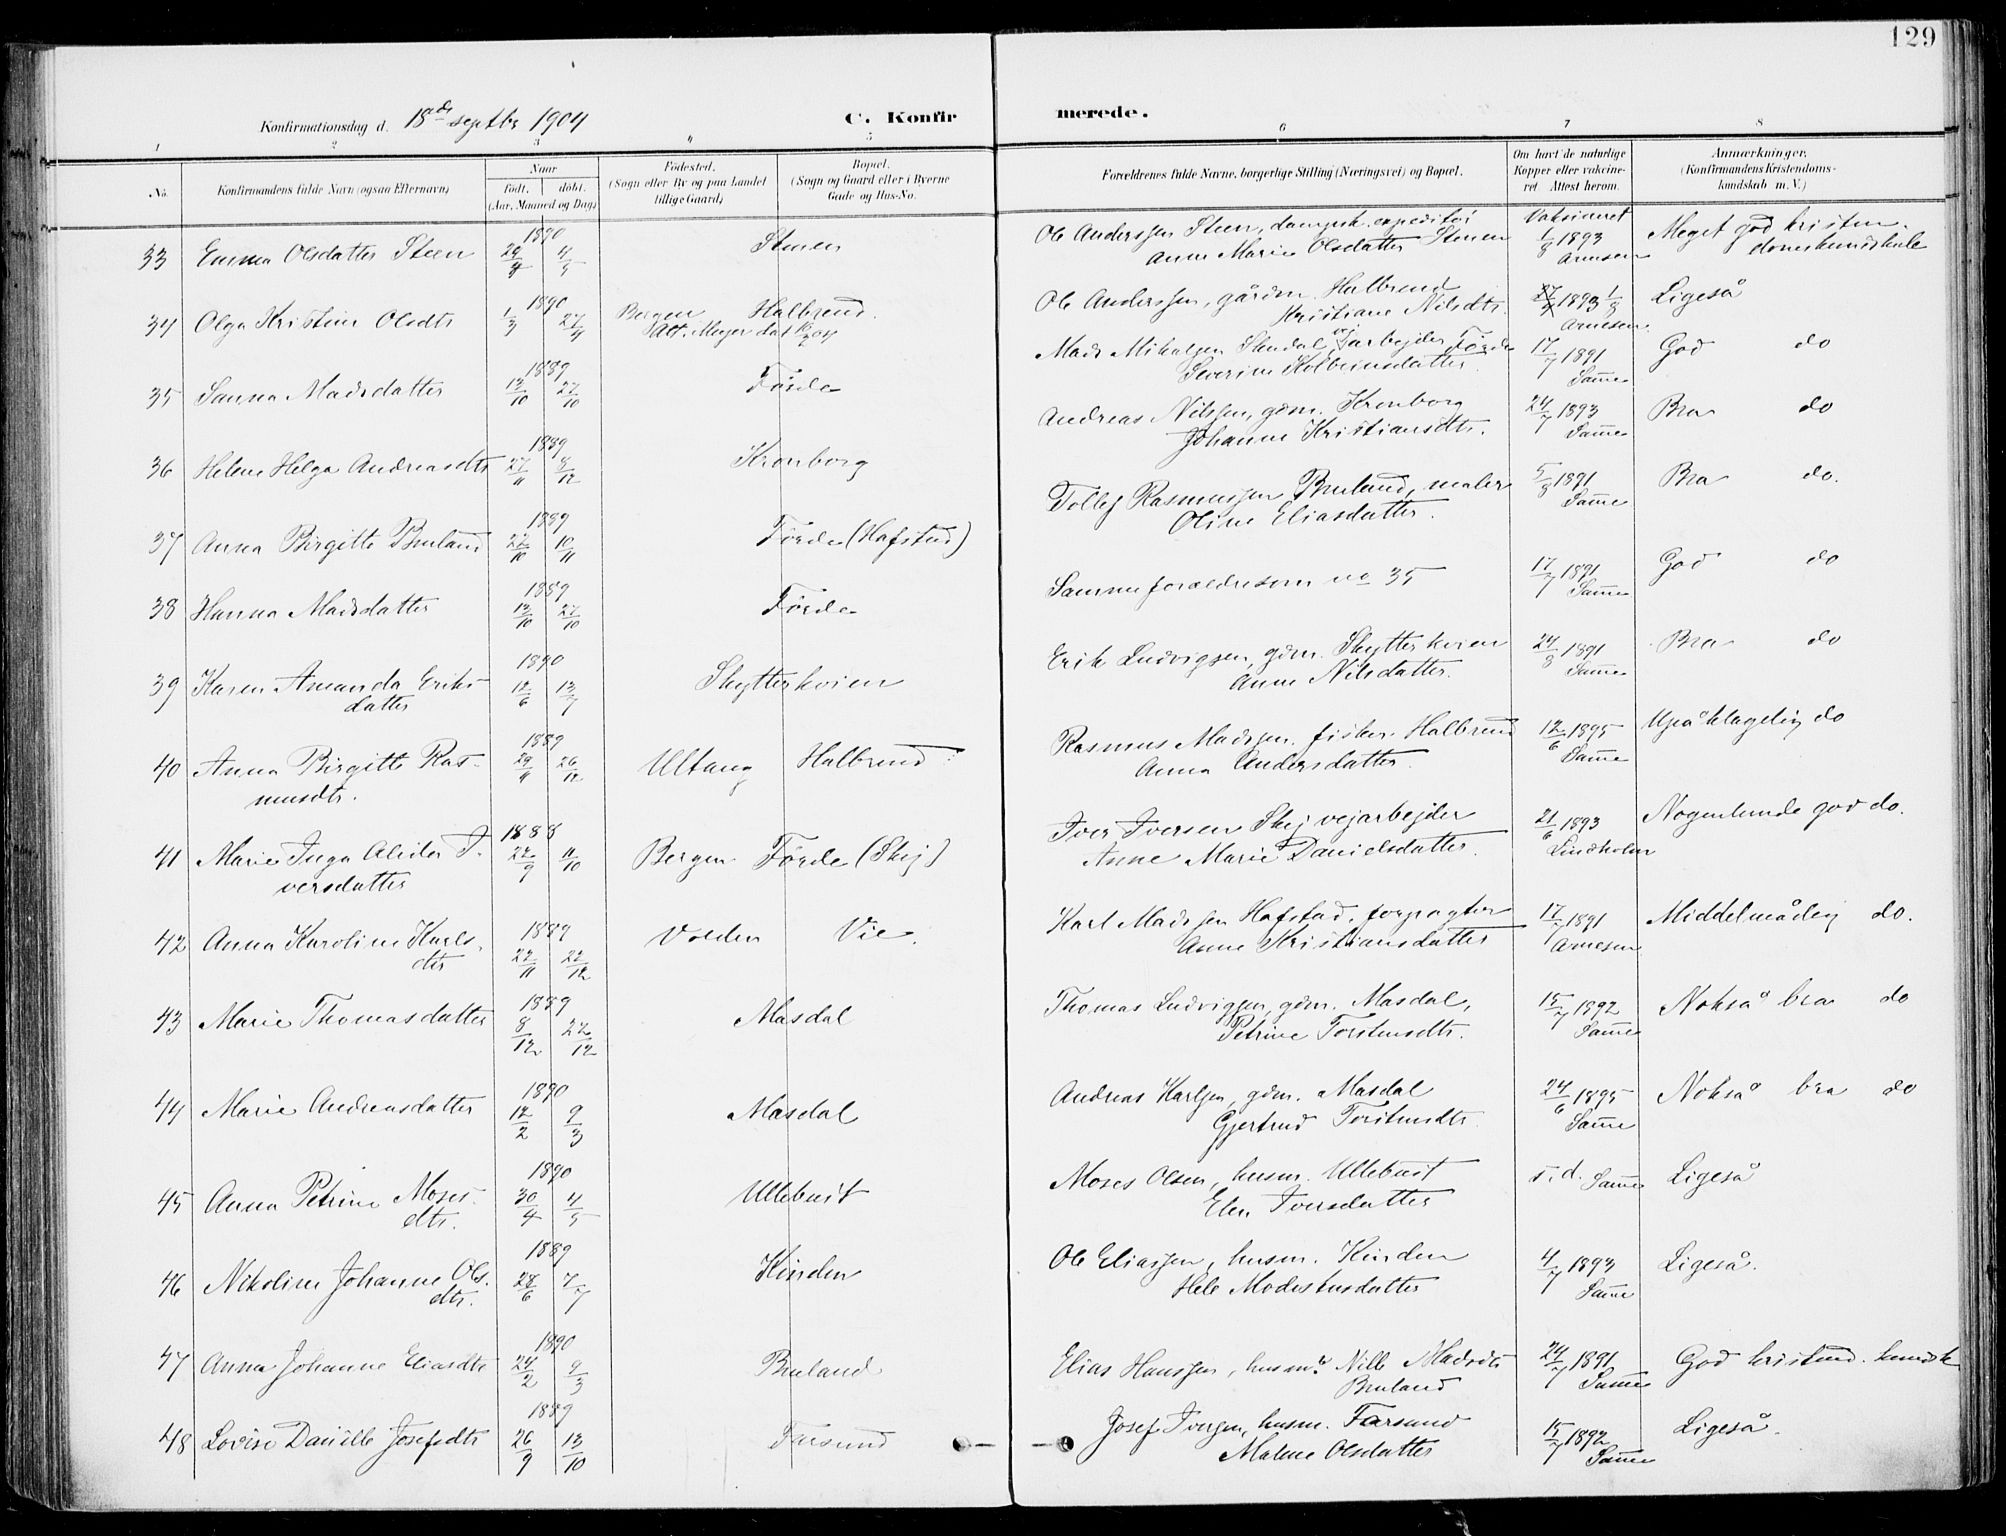 129
Konfirmationsdag d. 18de septbr 1904
C. Konfirmerede.
1 2 3 4 5 6 7 8
No.
Konfirmandens fulde Navn (ogsaa Efternavn)
Naar
født. døbt.
(Aar, Maaned og Dag)
Fødested.
(Sogn eller By og paa Landet
tillige Gaard)
Bopæl.
(Sogn og Gaard eller i Byerne
Gade og Hus-No.
Forældrenes fulde Navne, borgerlige Stilling (Næringsvei) og Bopæl.
Om havt de naturlige
Kopper eller vakcine-
ret. Attest herom.
Anmærkninger.
(Konfirmandens Kristendoms-
kundskab m. V.)
33 Emma Olsdatter Steen 1890 4/5 Stenen Ole Anderssen Steen, dampsk. expeditør Stenen Vaksineret 1/8 1893 Meget god kristen-
Anne Marie Olsdatter Arnesen domskundskab
34 Olga Kristine Olsdtr 1890 1/3 27/4 Bergen Halbrend. Ole Anderssen, gårdm. Halbrend 1893 1/8 Ligeså
Att. Meyer dat 04 Kristiane Nilsdtr. Arnesen
35 Sanna Madsdatter 1889 13/10 27/10 Førde Mads Mikalsen vejarbejder Førde 17/7 1891 God do
Severine Kolbeinsdatter Samme
36 Helene Helga Andreasdtr 1889 27/11 8/12 Kronborg Andreas Nilssen, gdm. Kronborg 24/7 1893 Bra do
Johanne Kristiansdtr. Samme
37 Anna Birgitte Bruland 1889 22/10 10/11 Førde (Hafstad) Tollef Rasmussen Bruland, maler 5/8 1891 Bra do.
Oline Eliasdatter. Samme
38 Hanna Madsdatter 1889 13/10 27/10 Førde Samme forældre som no 35 17/7 1891 God do
Samme
39 Karen Amanda Eriks- 1890 12/6 13/7 Skytterkvien Erik Ludvigsen, gdm. Skytterkvien 24/8 1891 Bra do
datter Anne Nilsdatter. Samme
40 Anna Birgitte Ras- 1889 29/11 26/12 Ultang Halbrend Rasmus Madssen. fisker. Halbrend 12/6 1895 Upåklagelig do
musdtr. Anna Andersdatter. Samme
41 Marie Inga Alida I- 1888 22/9 11/10 Bergen Førde (Skej) Iver Iversen Skej vejarbejder 21/6 1893 Nogenlunde god do.
versdatter Anne Marie Danielsdatter. Lindholm
42 Anna Karoline Karls- 1889 22/11 22/12 Volden Vie. Karl Madssen Hafstad, forpagter 17/7 1891 Middelmådig do.
dtr Anne Kristiansdatter Arnesen
43 Marie Thomasdatter 1889 8/12 22/12 Masdal Thomas Ludvigsen, gdm. Masdal, 15/7 1892 Nokså bra do
Petrine Torstensdtr. Samme
44 Marie Andreasdatter 1890 12/2 9/3 Masdal Andreas Karlsen, gdm. Masdal 24/6 1895 Nokså bra do
Gjertrud Torstensdtr. Samme
45 Anna Petrine Moses- 1890 30/4 4/5 Ullebust Moses Olsen, husm. Ullebust s. d. Samme Ligeså
dtr. Elen Iversdatter
46 Nikoline Johanne Ols- 1889 28/6 7/7 Kinden Ole Eliassen, husm. Kinden 4/7 1893 Ligeså.
dtr. Hele Modestusdatter Samme
47 Anna Johanne Eliasdtr 1890 24/2 9/3 Bruland Elias Hanssen, husmd. Nille Madsdtr 24/7 1891 God kristend. kundsk
Bruland Samme
48 Lovise Danielle Josefsdtr 1889 26/9 13/10 Farsund Josef Iversen, husm. Farsund 15/7 1892 Ligeså.
Malene Olsdatter Samme